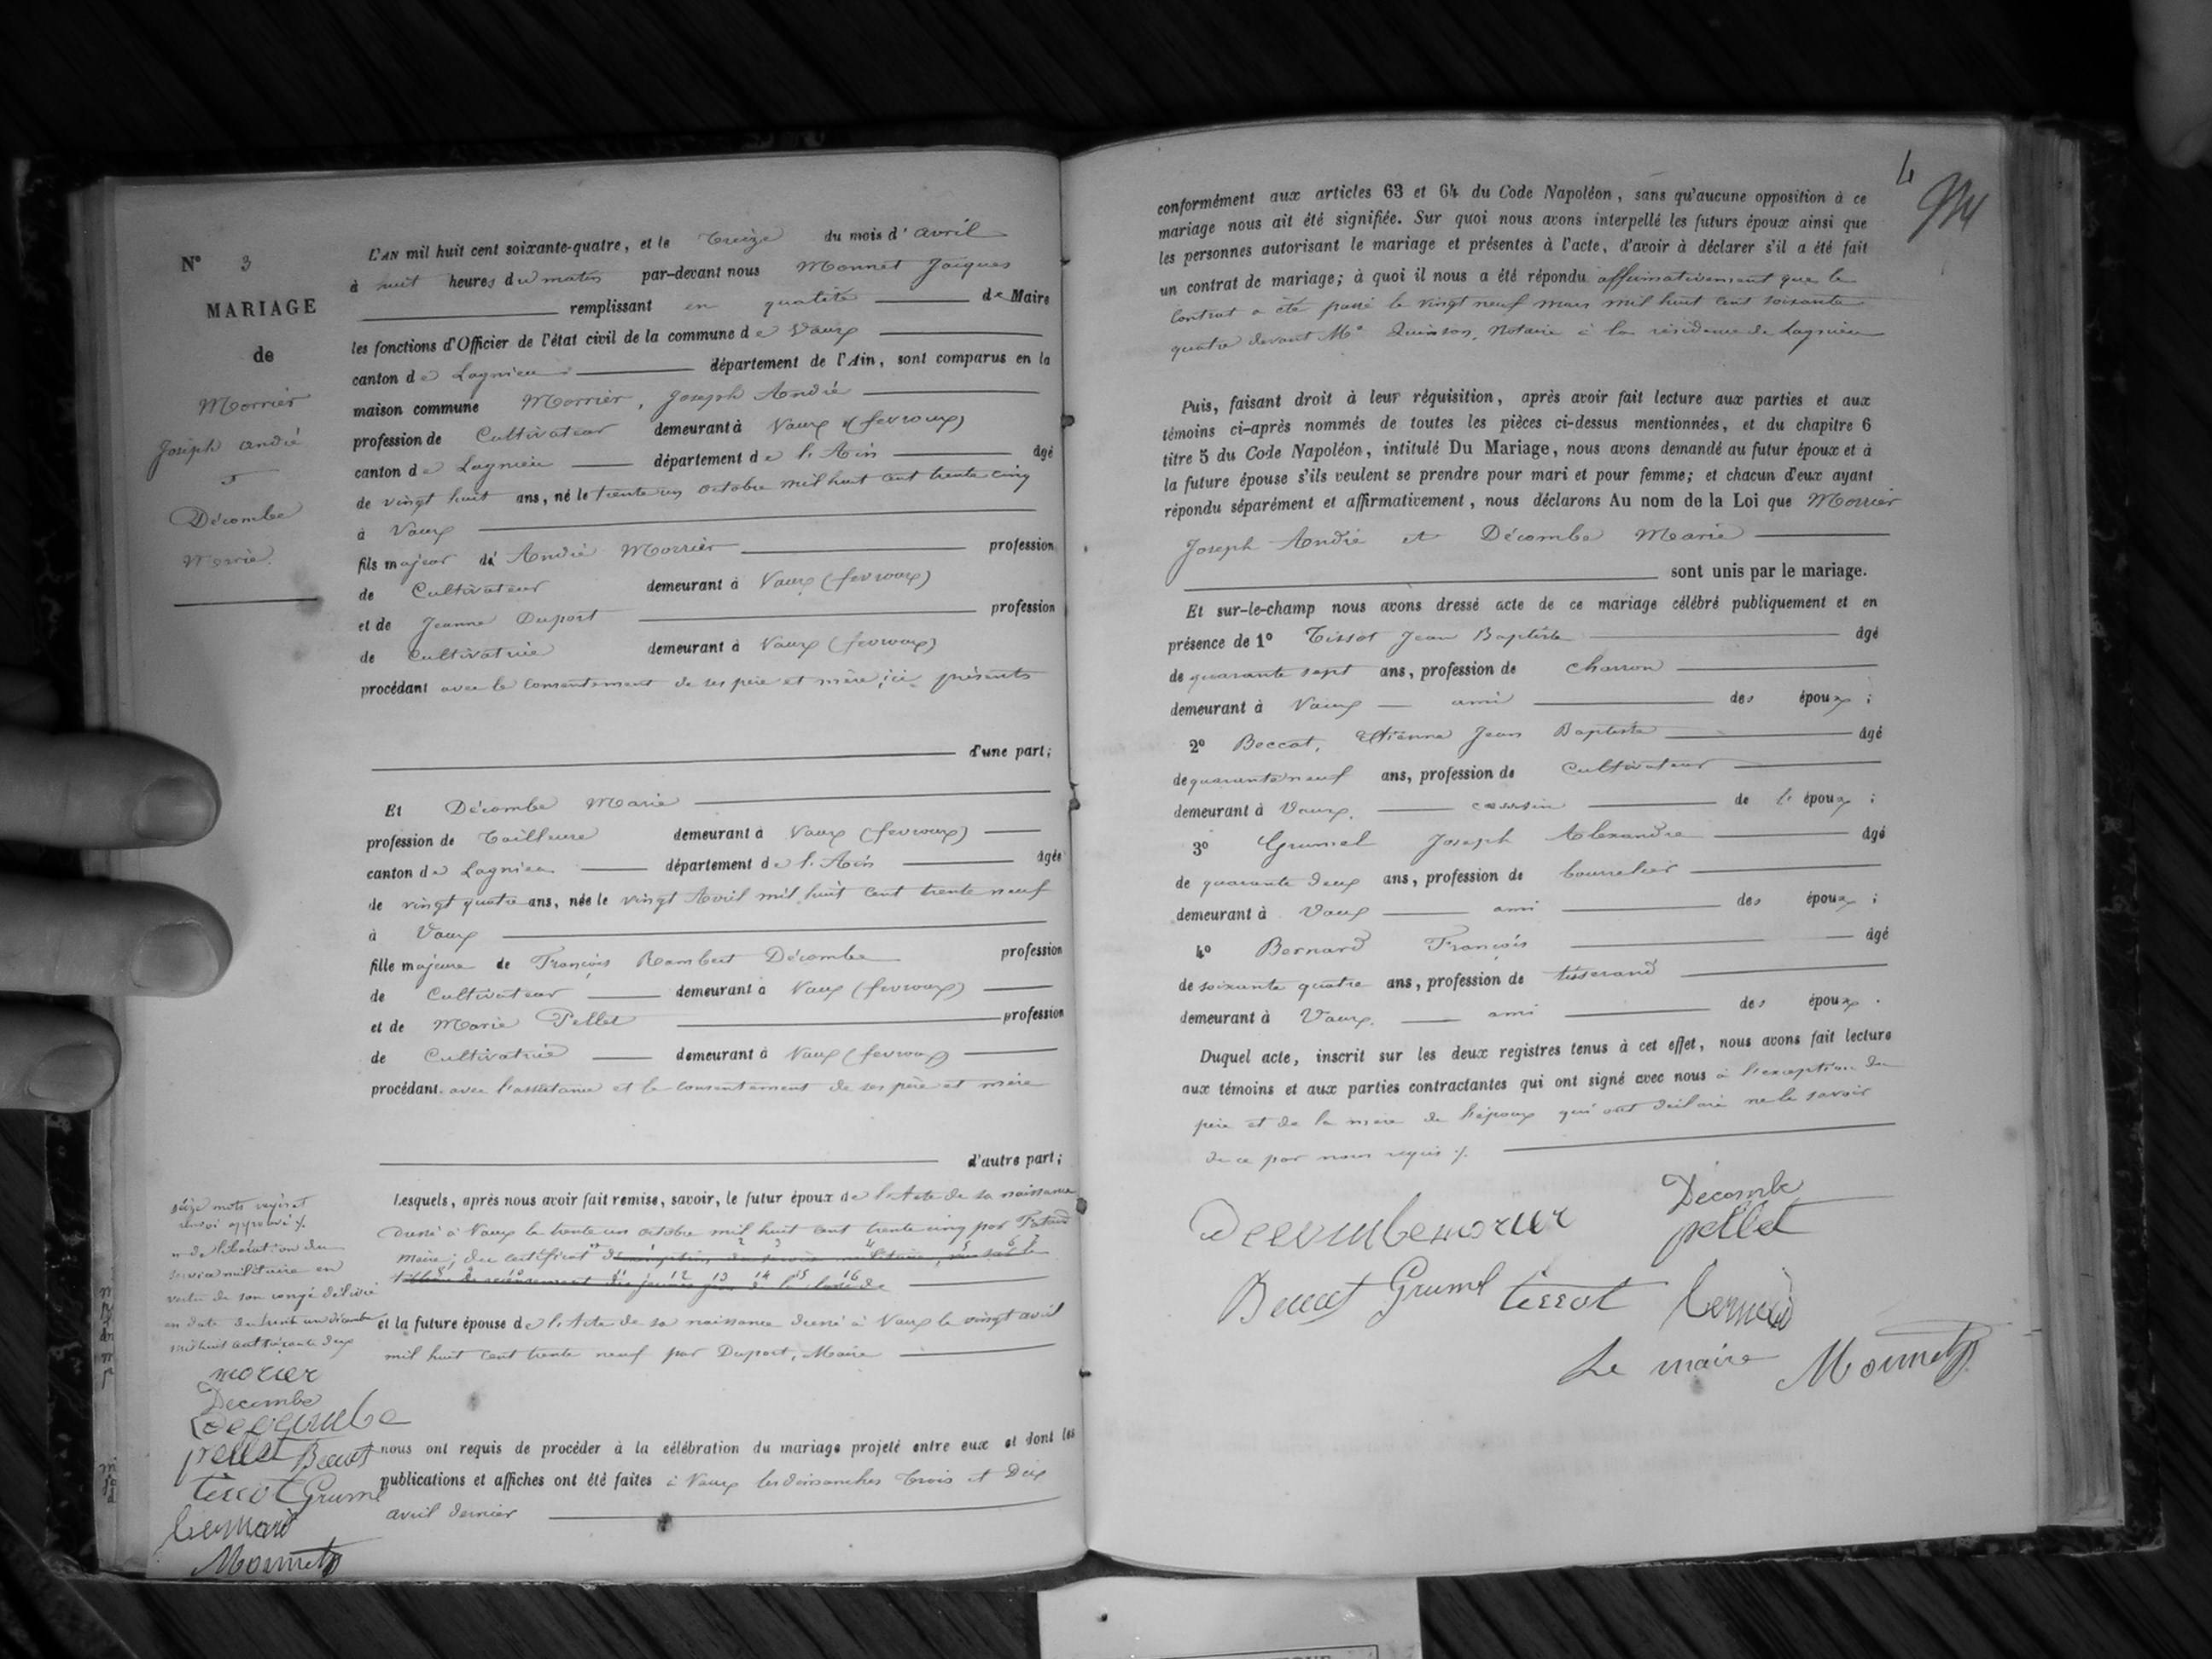 N° 3
MARIAGE
de
Morrier
Joseph André
et
Décombe
Marie
L'AN mil huit cent soixante-quatre, et le treize du mois d'avril
à huit heures du matin par-devant nous Monnet Jacques
remplissant en qualité de Maire
les fonctions d'Officier de l'état civil de la commune de Vaux
canton de Lagnieu département de l'Ain, sont comparus en la
maison commune Morrier, Joseph André
profession de Cultivateur demeurant à Vaux (fevroux)
canton de Lagnieu département de l'Ain âgé
de vingt huit ans, né le trente un octobre mil huit cent trente cinq
à Vaux
fils majeur de André Morrier profession
de Cultivateur demeurant à Vaux (fevroux)
et de Jeanne Duport profession
de Cultivatrice demeurant à Vaux (fevroux)
procédant avec le consentement de ses père et mère, ici présents
d'une part;
Et Décombe Marie
profession de Tailleuse demeurant à Vaux (fevroux)
canton de Lagnieu département de l'Ain âgée
de vingt quatre ans, née le vingt Avril mil huit cent trente neuf
à Vaux
fille majeure de François Rambert Décombe profession
de Cultivateur demeurant à Vaux (fevroux)
et de Marie Pellet profession
de Cultivatrice demeurant à Vaux (fevroux)
procédant avec l'assistance et le consentement de ses père et mère
d'autre part;
Lesquels, après nous avoir fait remise, savoir, le futur époux de l'Acte de sa naissance
dressé à Vaux le trente un octobre mil huit cent trente cinq par
Maire; du certificat
1 2 3 4 5 6 7
8 9 10 11 12 13 14 15 16
et la future épouse de l'Acte de sa naissance dressé à Vaux le vingt avril
mil huit cent trente neuf par Duport, Maire
nous ont requis de procéder à la célébration du mariage projeté entre eux et dont les
publications et affiches ont été faites à Vaux les dimanches trois et Dix
avril dernier
seize mots rayés et
renvoi approuvé
de libération du
service militaire en
vertu de son congé délivré
en date du trente un décembre
mil huit cent soixante deux
morier
Decombe
Decombe
pellet Beccat
tissot Grumel
bernard
Monnet
4
conformément aux articles 63 et 64 du Code Napoléon, sans qu'aucune opposition à ce
mariage nous ait été signifiée. Sur quoi nous avons interpellé les futurs époux ainsi que
les personnes autorisant le mariage et présentes à l'acte, d'avoir à déclarer s'il a été fait
un contrat de mariage; à quoi il nous a été répondu affirmativement que le
contrat a été passé le vingt neuf mars mil huit cent soixante
quatre devant Me Quinson, Notaire à la résidence de Lagnieu
Puis, faisant droit à leur réquisition, après avoir fait lecture aux parties et aux
témoins ci-après nommés de toutes les pièces ci-dessus mentionnées, et du chapitre 6
titre 5 du Code Napoléon, intitulé Du Mariage, nous avons demandé au futur époux et à
la future épouse s'ils veulent se prendre pour mari et pour femme; et chacun d'eux ayant
répondu séparément et affirmativement, nous déclarons Au nom de la Loi que Morrier
Joseph André et Décombe Marie
sont unis par le mariage.
Et sur-le-champ nous avons dressé acte de ce mariage célébré publiquement et en
présence de 1° Tissot Jean Baptiste âgé
de quarante sept ans, profession de charron
demeurant à Vaux ami des époux;
2° Beccat, Etienne Jean Baptiste âgé
de quarante neuf ans, profession de Cultivateur
demeurant à Vaux. cousin de l'époux;
3° Grumel Joseph Alexandre âgé
de quarante deux ans, profession de bourrelier
demeurant à Vaux ami des époux;
4° Bernard François âgé
de soixante quatre ans, profession de tisserand
demeurant à Vaux. ami des époux.
Duquel acte, inscrit sur les deux registres tenus à cet effet, nous avons fait lecture
aux témoins et aux parties contractantes qui ont signé avec nous à l'exception du
père et de la mère de l'époux qui ont déclaré ne le savoir
de ce par nous requis
Decombe morier Décombe
pellet
Beccat Grumel tissot bernard
Le maire Monnet